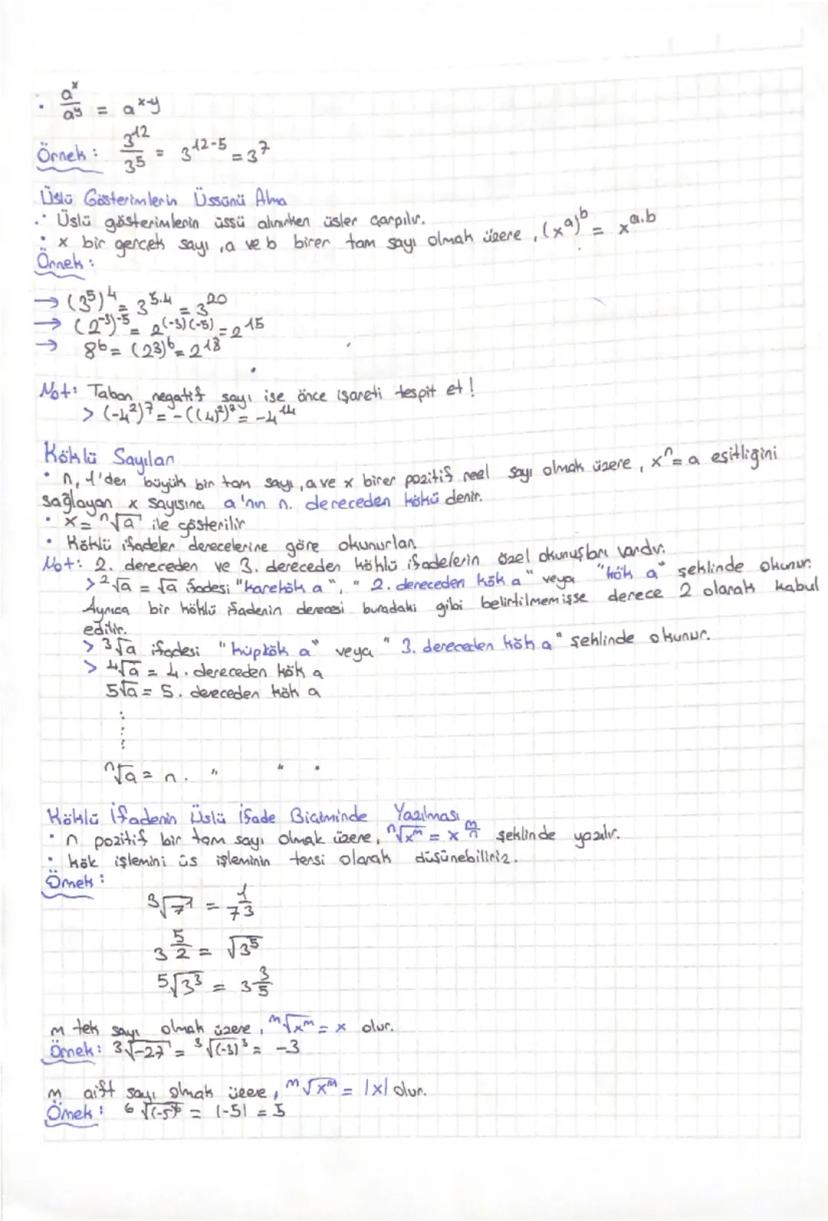 · a^x/a^y = a^(x-y)
Örnek: 3^12/3^5 = 3^(12-5) = 3^7
Üslü Gösterimlerin Üssünü Alma
· Üslü gösterimlerin üssü alınırken üsler çarpılır.
· x bir gerçek sayı, a ve b birer tam sayı olmak üzere, (x^a)^b = x^(a.b)
Örnek:
→ (3^5)^4 = 3^(5.4) = 3^20
→ (2^-3)^-5 = 2^((-3)(-5)) = 2^15
→ 8^6 = (2^3)^6 = 2^18
Not: Taban negatif sayı ise önce işareti tespit et!
> (-4^2)^7 = -((4)^2)^7 = -4^14
Köklü Sayılar
· n, 1'den büyük bir tam sayı, a ve x birer pozitif reel sayı olmak üzere, x^n = a eşitliğini
sağlayan x sayısına a'nın n. dereceden kökü denir.
· x = ⁿ√a ile gösterilir
· Köklü ifadeler derecelerine göre okunurlar.
Not: 2. dereceden ve 3. dereceden köklü ifadelerin özel okunuşları vardır.
> ²√a = √a ifadesi "karekök a", "2. dereceden kök a" veya "kök a" şeklinde okunur.
Ayrıca bir köklü ifadenin derecesi buradaki gibi belirtilmemişse derece 2 olarak kabul
edilir.
> ³√a ifadesi "küpkök a" veya "3. dereceden kök a" şeklinde okunur.
> ⁴√a = 4. dereceden kök a
5√a = 5. dereceden kök a
⋮
ⁿ√a = n. " " "
Köklü İfadenin Üslü İfade Biçiminde Yazılması
· n pozitif bir tam sayı olmak üzere, ⁿ√x^m = x^(m/n) şeklinde yazılır.
· kök işlemini üs işleminin tersi olarak düşünebiliriz.
Örnek:
³√7^1 = 7^(1/3)
3^(5/2) = √3^5
⁵√3^3 = 3^(3/5)
m tek sayı olmak üzere, ᵐ√x^m = x olur.
Örnek: ³√-27 = ³√(-3)^3 = -3
m çift sayı olmak üzere, ᵐ√x^m = |x| olur.
Örnek: ⁶√(-5)^6 = |-5| = 5